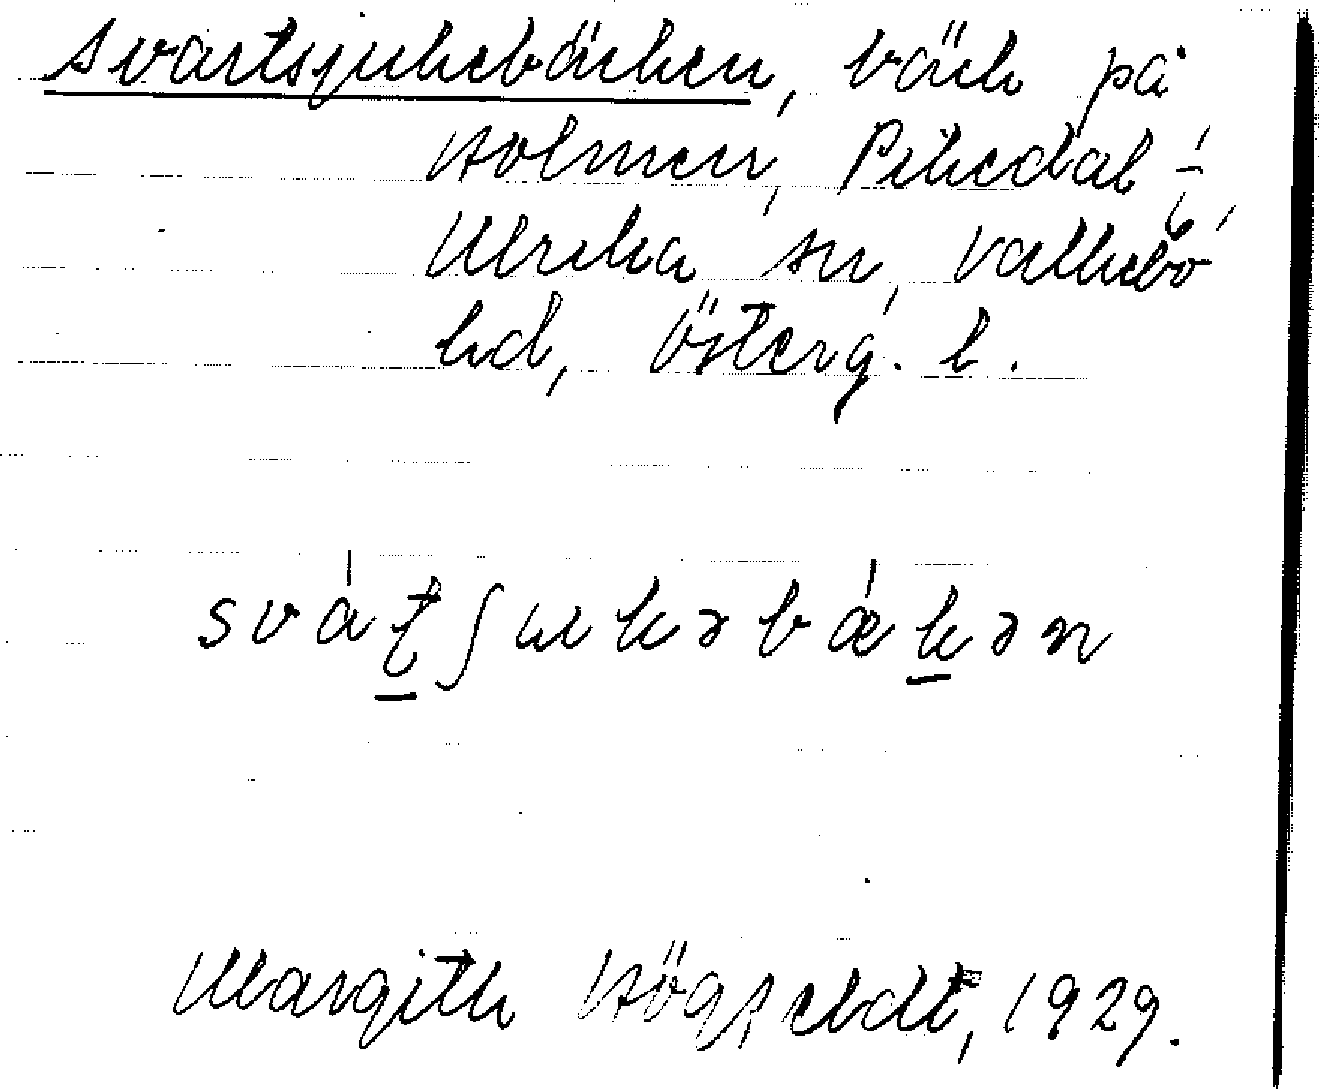 Svartsjukebäcken, bäck på
Holmen, Pikedal 1/6,
Ulrika sn, Valkebo
hd, Österg. l.
svátʃukəbǽkən
Margith Högfeldt, 1929.